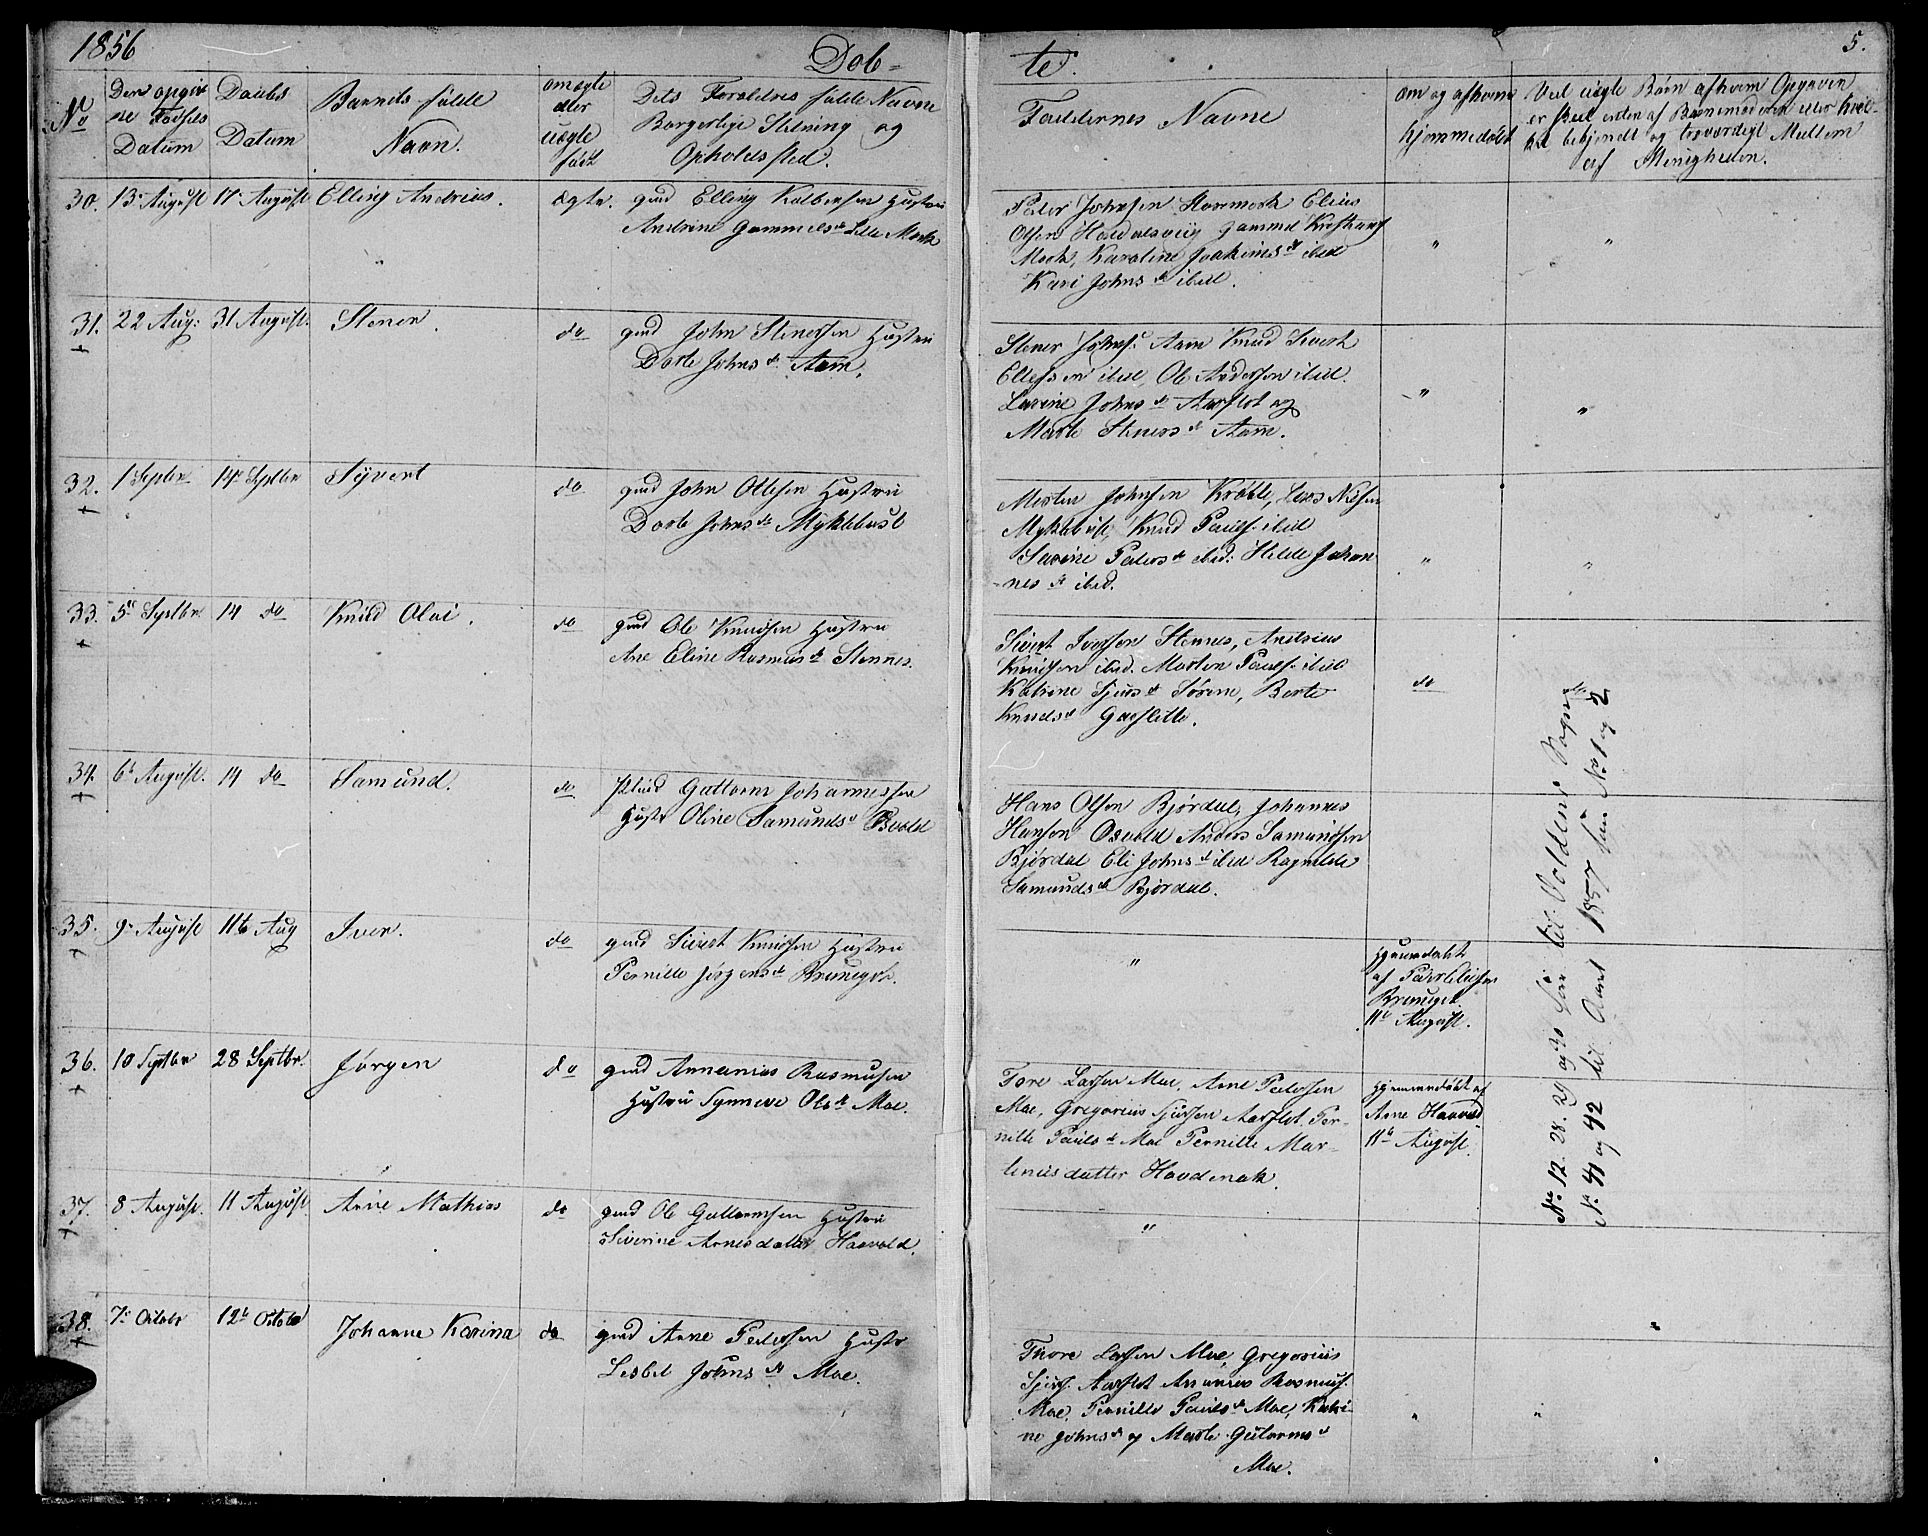 1856
Døb=
te.
5.
No
Den opgiv
ne Fødsels
Datum
Daabs
Datum
Barnets fulde
Navn.
om ægte
eller
uægte
født
Dets Forældres fulde Navne
Borgerlige Stilning og
Opholdssted.
Faddernes Navne
om og af hvem
hjemmedøbt
Ved uægte Børn af hvem Opgaven
er skeet enten af Barnemoderen eller hvil-
ket bekjendt og troværdigt Mellem
af Menigheden.
30. 13 August 17 August Elling Andreas. ægte. gmd Elling Kolbensen Hustru
Andrine Gammels d Lille Mork
Peder Johnsen Storemork Elias
Olsen Gammel
Mork, Karoline Joakims d ibid
Kari Johns d ibid.
31. 22 Aug: 31 August. Stener. do gmd John Stenersen Hustru
Dorte Johns d. Aam.
Stener Johns. Aam Knud Sivert
Ellefsen ibid, Ole Andersen ibid.
Lavine Johns d Aarflot og
Marte Steners d Aam.
32. 1 Septbr 14 Septbr Syvert do gmd John Ottesen Hustru
Dorte Johns d Myklebust
Morten Johnsen Krøvle, Lars Nilsen
Myklebust, Knud Pauls. ibid
Severine Peders d ibid: Hilde Johan
nes d ibid.
33. 5 Septbr. 14 do Knud Olai. do gmd Ole Knudsen Hustru
Ane Eline Rasmus d Stennes.
Sivert Iversen Stennes, Andreas
Knudsen ibid. Morten Pauls. ibid
Katrine Sjurs d Sørem, Berte
Knuds d
do
34. 6t August. 14 do Samund. do Guttorm Johannessen
Hustr Oline Samunds d Osvold
Hans Olsen Bjørdal, Johannes
Hansen Osvold Anders Samundsen
Bjørdal Eli Johns d ibid Ragnilde
Samunds d Bjørdal.
35. 9 August 11t Aug Iver. do gmd Sivert Knudsen Hustru
Pernille Jørgens d Bruneget.
Hjemmedøbt
af Peder Eliasen
Bruneget.
11t August.
36. 10 Septbr 28 Septbr. Jørgen do gmd Annanias Rasmusen
Hustru Synneve Ols d Moe.
Tore Larsen Moe, Arne Pedersen
Moe, Gregorius Sjursen Aarflot Per-
nille Pauls d Moe Pernille Mar-
tinusdatter Hovdenak.
Hjemmedøbt af
Arne Haavold
11t August.
37. 8 August. 11 August. Arne Mathias do gmd Ole Guttormsen Hustru
Siverine Arnesdatter Haavold.
38. 7 Octobr 12t Octobr Johanne Karina do gmd Arne Pedersen Hustr
Lisbet Johns d Moe.
Thore Larsen Moe, Gregorius
Sjurs. Aarflot Ananias Rasmus.
Moe, Pernille Pauls d Moe, Katri-
ne Johns d og Marte Gutorms d
Moe.
No 12. 28. 29 og 30 sees til Voldens Sogn
No 41 og 42 til Aaret 1857 No 1 og 2